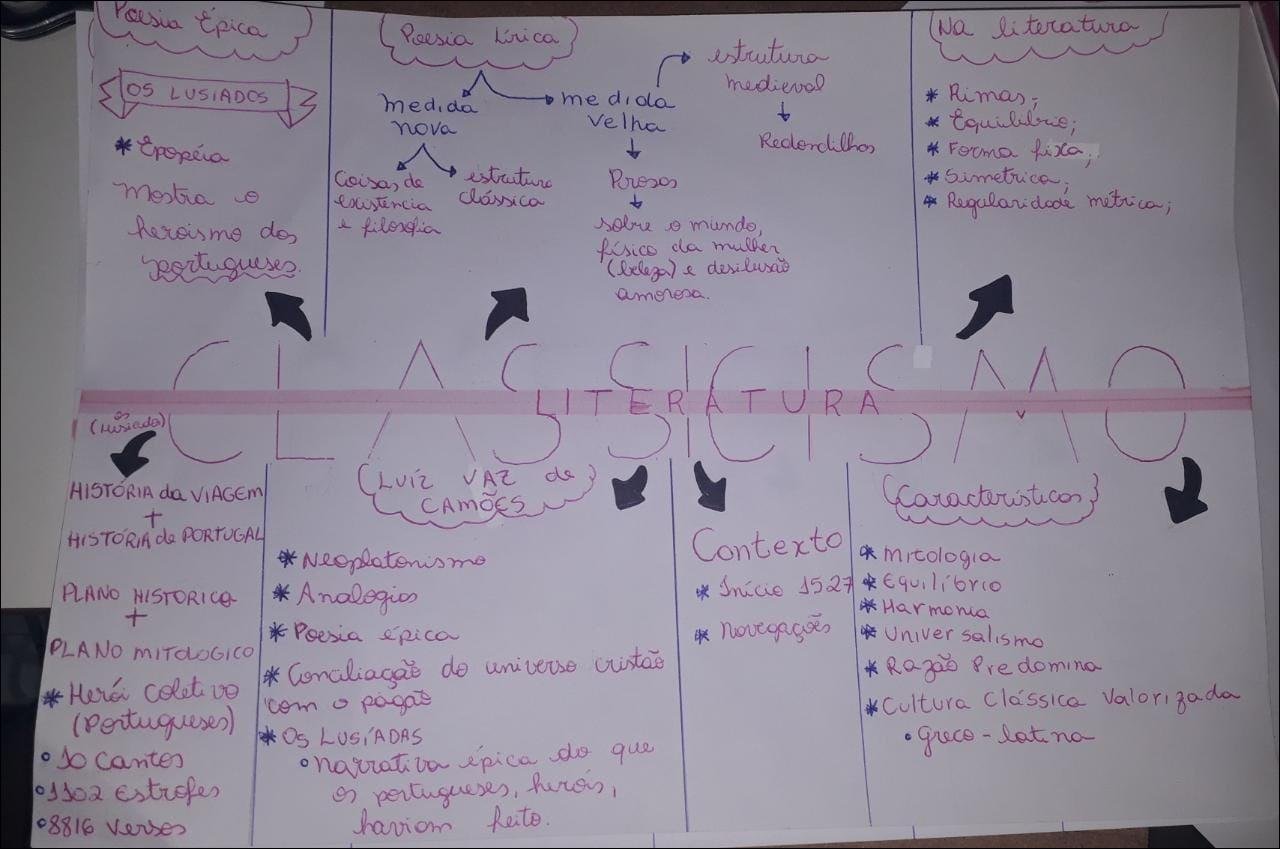 Poesia Épica
OS LUSIADOS
* Epopéia
Mostra o
heroismo dos
portugueses.
Poesia Lírica
medida
nova
Coisas de
existência
e filosofia
estrutura
clássica
medida
velha
Prosas
sobre o mundo,
físico da mulher
(beleza) e desilusão
amorosa.
estrutura
medieval
Redondilhos
Na literatura
* Rimas;
* Equilíbrio;
* Forma fixa;
* Simetrica;
* Regularidade métrica;
CLASSICISMO
LITERATURA
(os Lusíadas)
HISTÓRIA da VIAGEM
+
HISTÓRIA de PORTUGAL
PLANO HISTORICO
+
PLANO MITOLOGICO
* Herói Coletivo
(Portugueses)
• 10 Cantos
• 1102 Estrofes
• 8816 versos
(LUÍZ VAZ de
CAMÕES)
* Neoplatonismo
* Analogias
* Poesia épica
* Conciliação do universo cristão
com o pagão
* OS LUSÍADAS
• narrativa épica do que
os portugueses, heróis,
haviam feito.
Contexto
* Início 1527
* Navegações
(Características)
* Mitologia
* Equilíbrio
* Harmonia
* Universalismo
* Razão Predomina
* Cultura Clássica Valorizada
• greco-latina